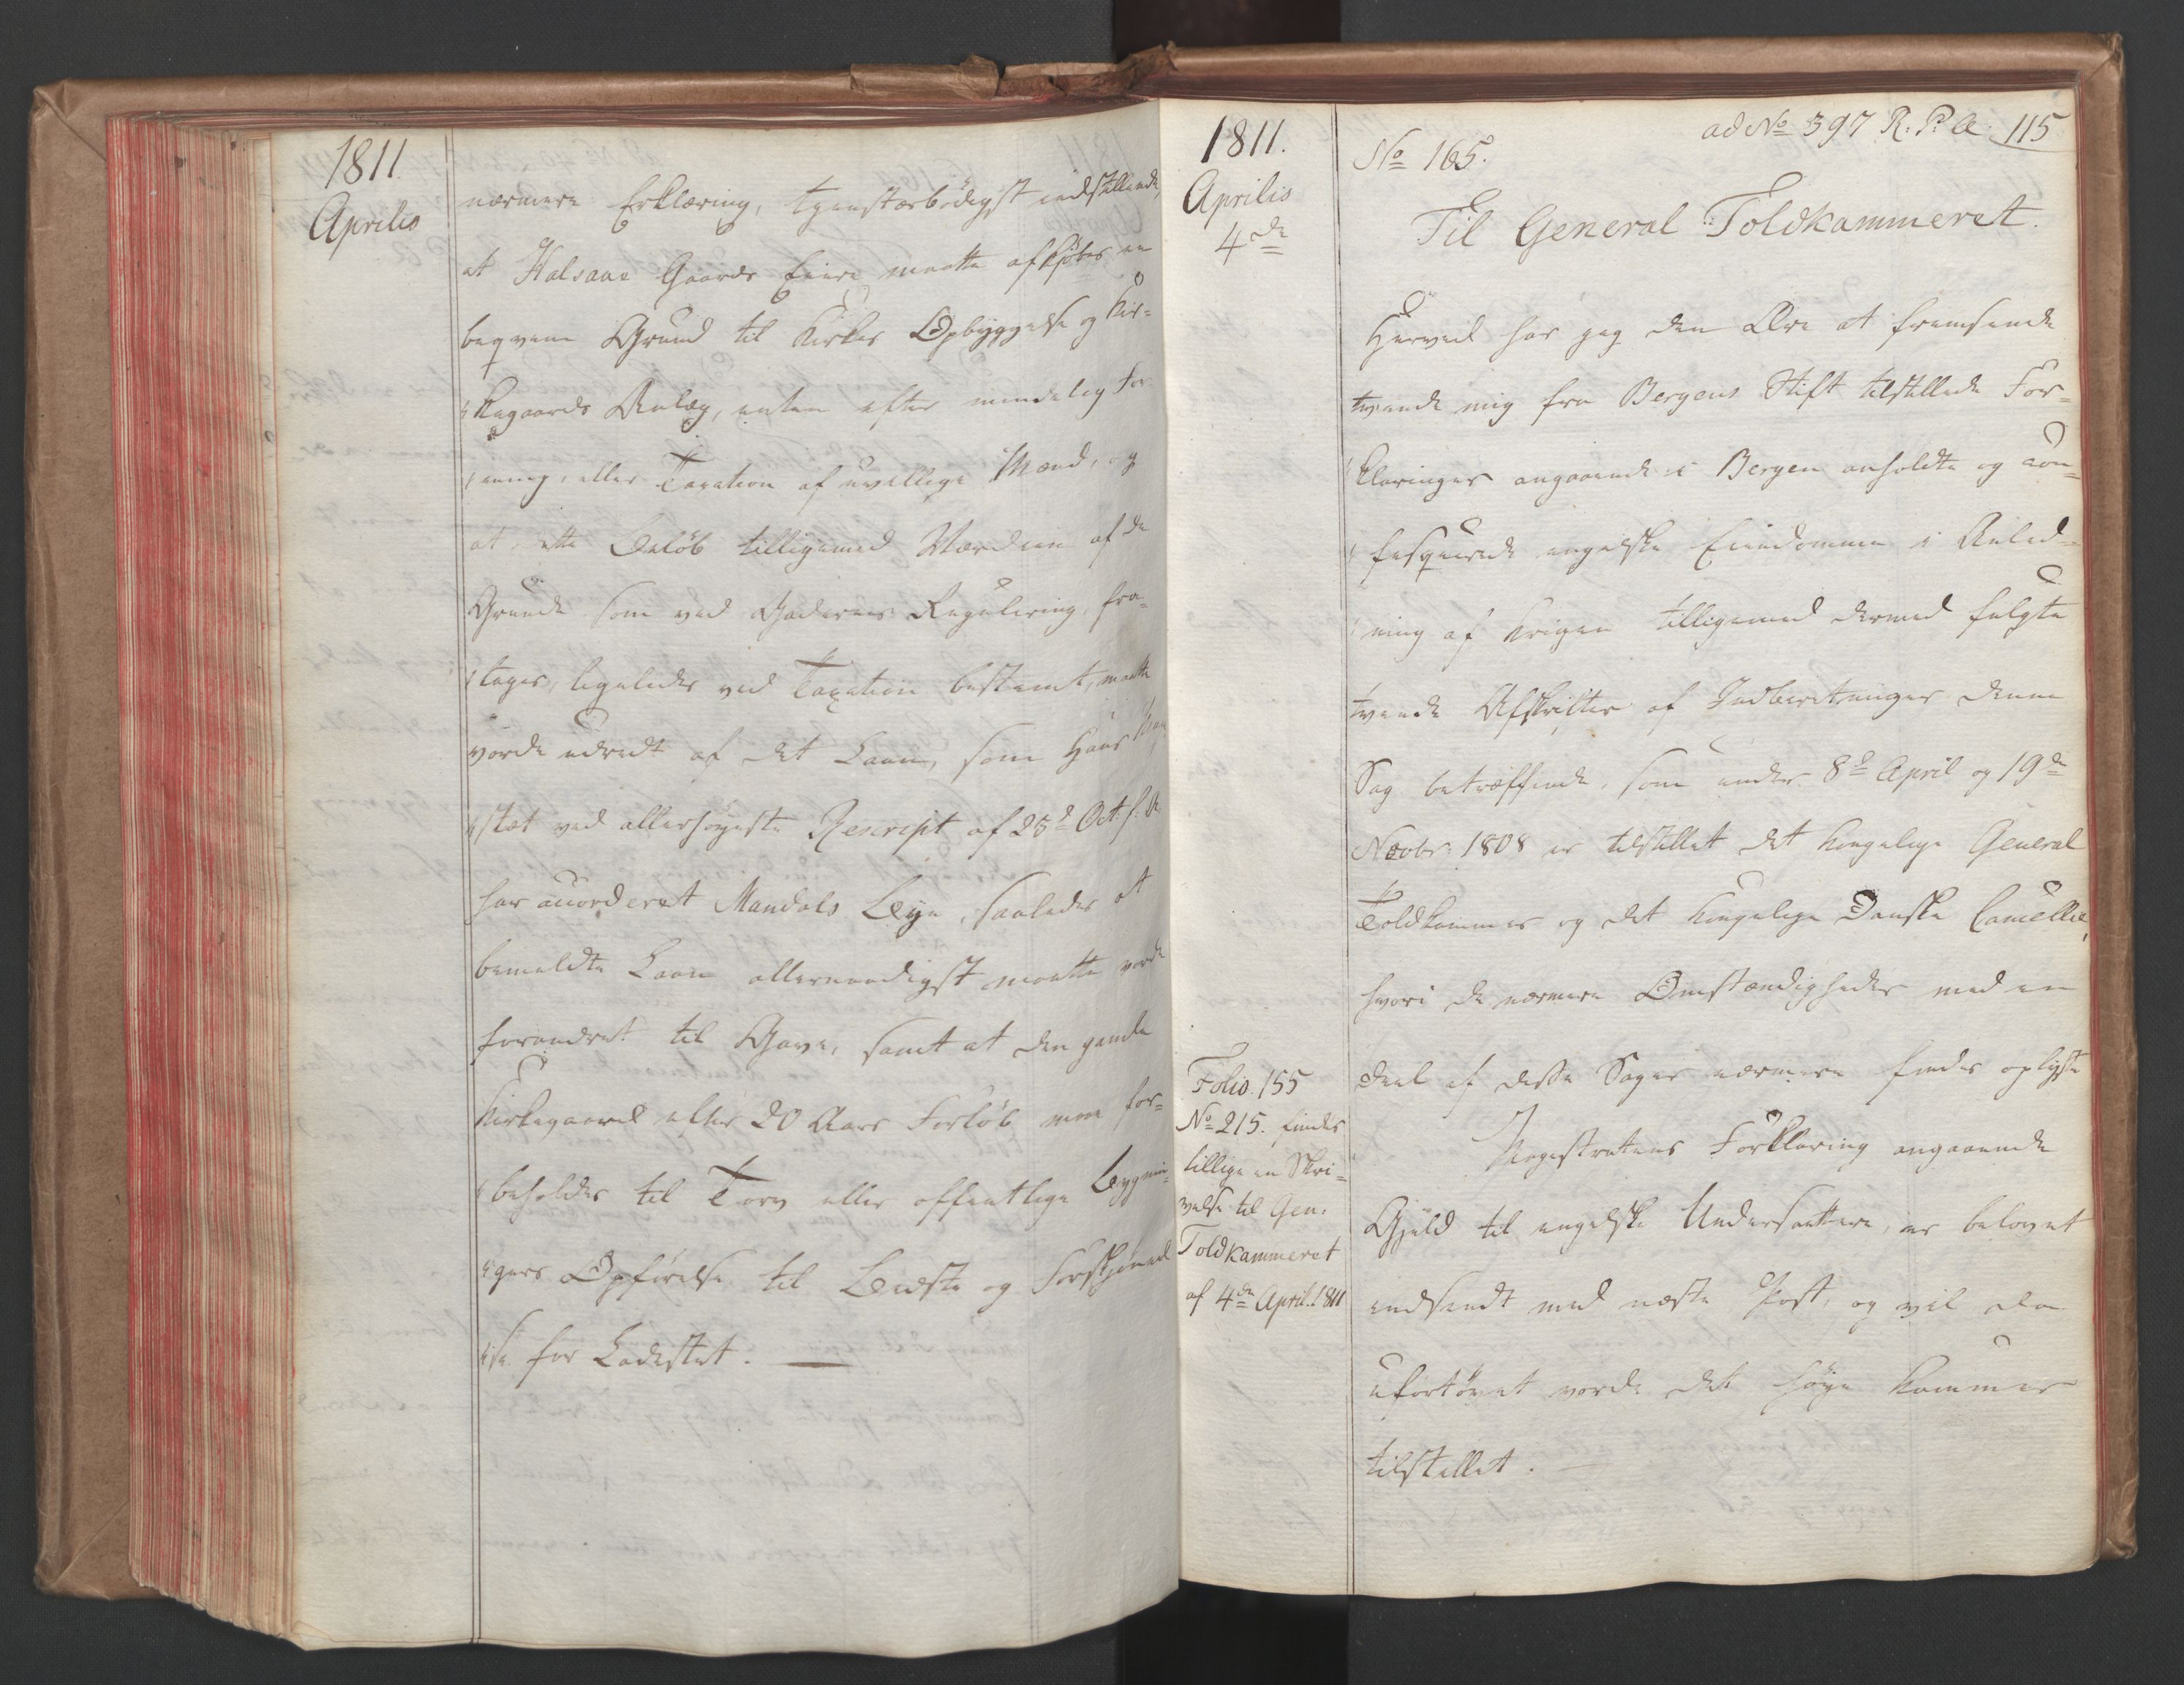 1811.
Aprilis
nærmere Erklæring, tjenstærbödigst indstillende,
at Halsaae Gaards Eiere maatte afkjöbes en
beqvem Grund til Kirkes Opbyggelse og Kir=
kegaards Anlæg, enten efter mindelig For=
ening, eller Taxation af uvillige Mænd, og
at dette Belöb tilligemed Værdien af de
Grunde som ved Gadernes Regulering fra=
tages, ligeledes ved Taxation bestemt, maatte
vorde udredt af det Laan, som Hans
stæt ved allerhöyeste Rescript af 23d Oct. f. A.
har accorderet Mandals Bye, saaledes at
bemeldte Laan allernaadigst maatte vorde
forandret til Gave, samt at den gamle
Kirkegaard efter 20 Aars Forlöb maae for=
beholdes til Torv eller offentlige Bygnin=
gers Opförelse til Bedste og Forskjönnel
se for Ladestæt. —
1811.
Aprilis
4de
No 165.
ad No 397 R: P: A: 115
Til General Toldkammeret.
Herved har jeg den Ære at fremsende
tvende mig fra Bergens Stift tilstillede For=
klaringer angaaende i Bergen anholdte og con=
fisqverede engelske Eiendomme i Anled=
ning af Krigen tilligemed dermed fulgte
tvende Afskrifter af Indberetninger denne
Sag betræffende, som under 8d April og 19de
Novbr: 1808 er tilstillet det kongelige General
Toldkammer og det kongelige Danske Cancellie,
hvori de nærmere Omstændigheder med en
Deel af disse Sager nærmere findes oplyste
Magistratens Forklaring angaaende
Gjeld til engelske Undersaattere, er belovet
indsendt med næste Post, og vil da
ufortövet vorde det höye Kammer
tilstillet. —
Folio. 155
No 215. findes
tillige en Skri=
velse til Gen:
Toldkammeret
af 4de April. 1811